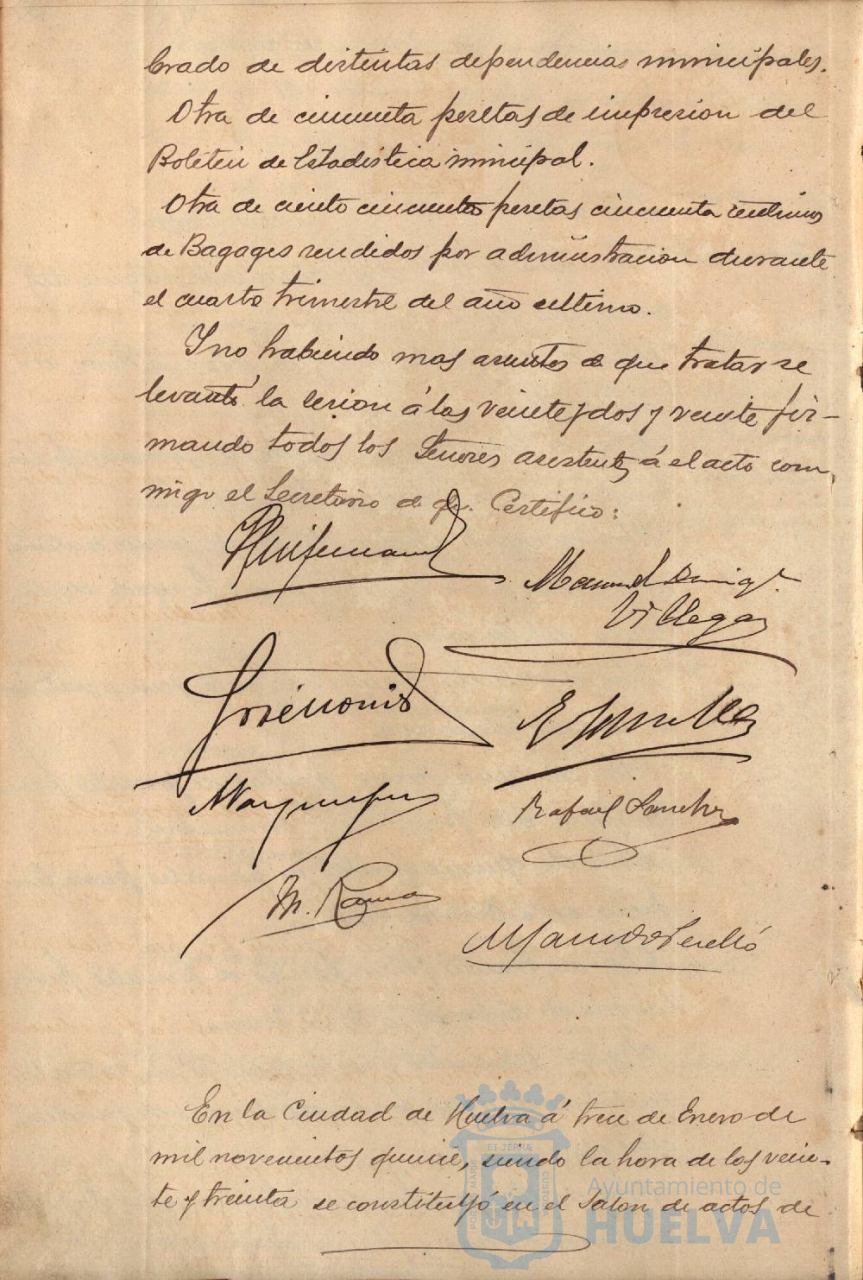 brado de distintas dependencias municipales.
Otra de cincuenta pesetas de impresion del
Boletin de Estadistica municipal.
Otra de ciento cincuenta pesetas cincuenta centimos
de Bagages rendidos por administracion durante
el cuarto trimestre del año ultimo.
Y no habiendo mas asuntos de que tratar se
levantó la sesion á las veinte y dos y veinte fir-
mando todos los Señores asistentes á el acto con-
migo el Secretario de que Certifico:
Manuel Domingz
Villegas
Rafael Sanchez
M. Rama
En la Ciudad de Huelva á trece de Enero de
mil novecientos quince, siendo la hora de las vein-
te y treinta se constituyó en el Salon de actos de
Ayuntamiento de
HUELVA